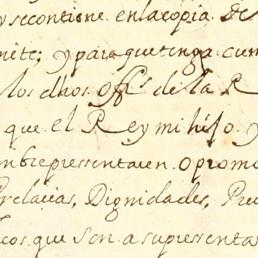 y se contiene en la copia de
mite; y para que tenga cum
los dhos offs. de la R
que el Rey mi hijo y
represrentare en o promo
Prelacias, Dignidades, Pre
cos, que son a su presrenta